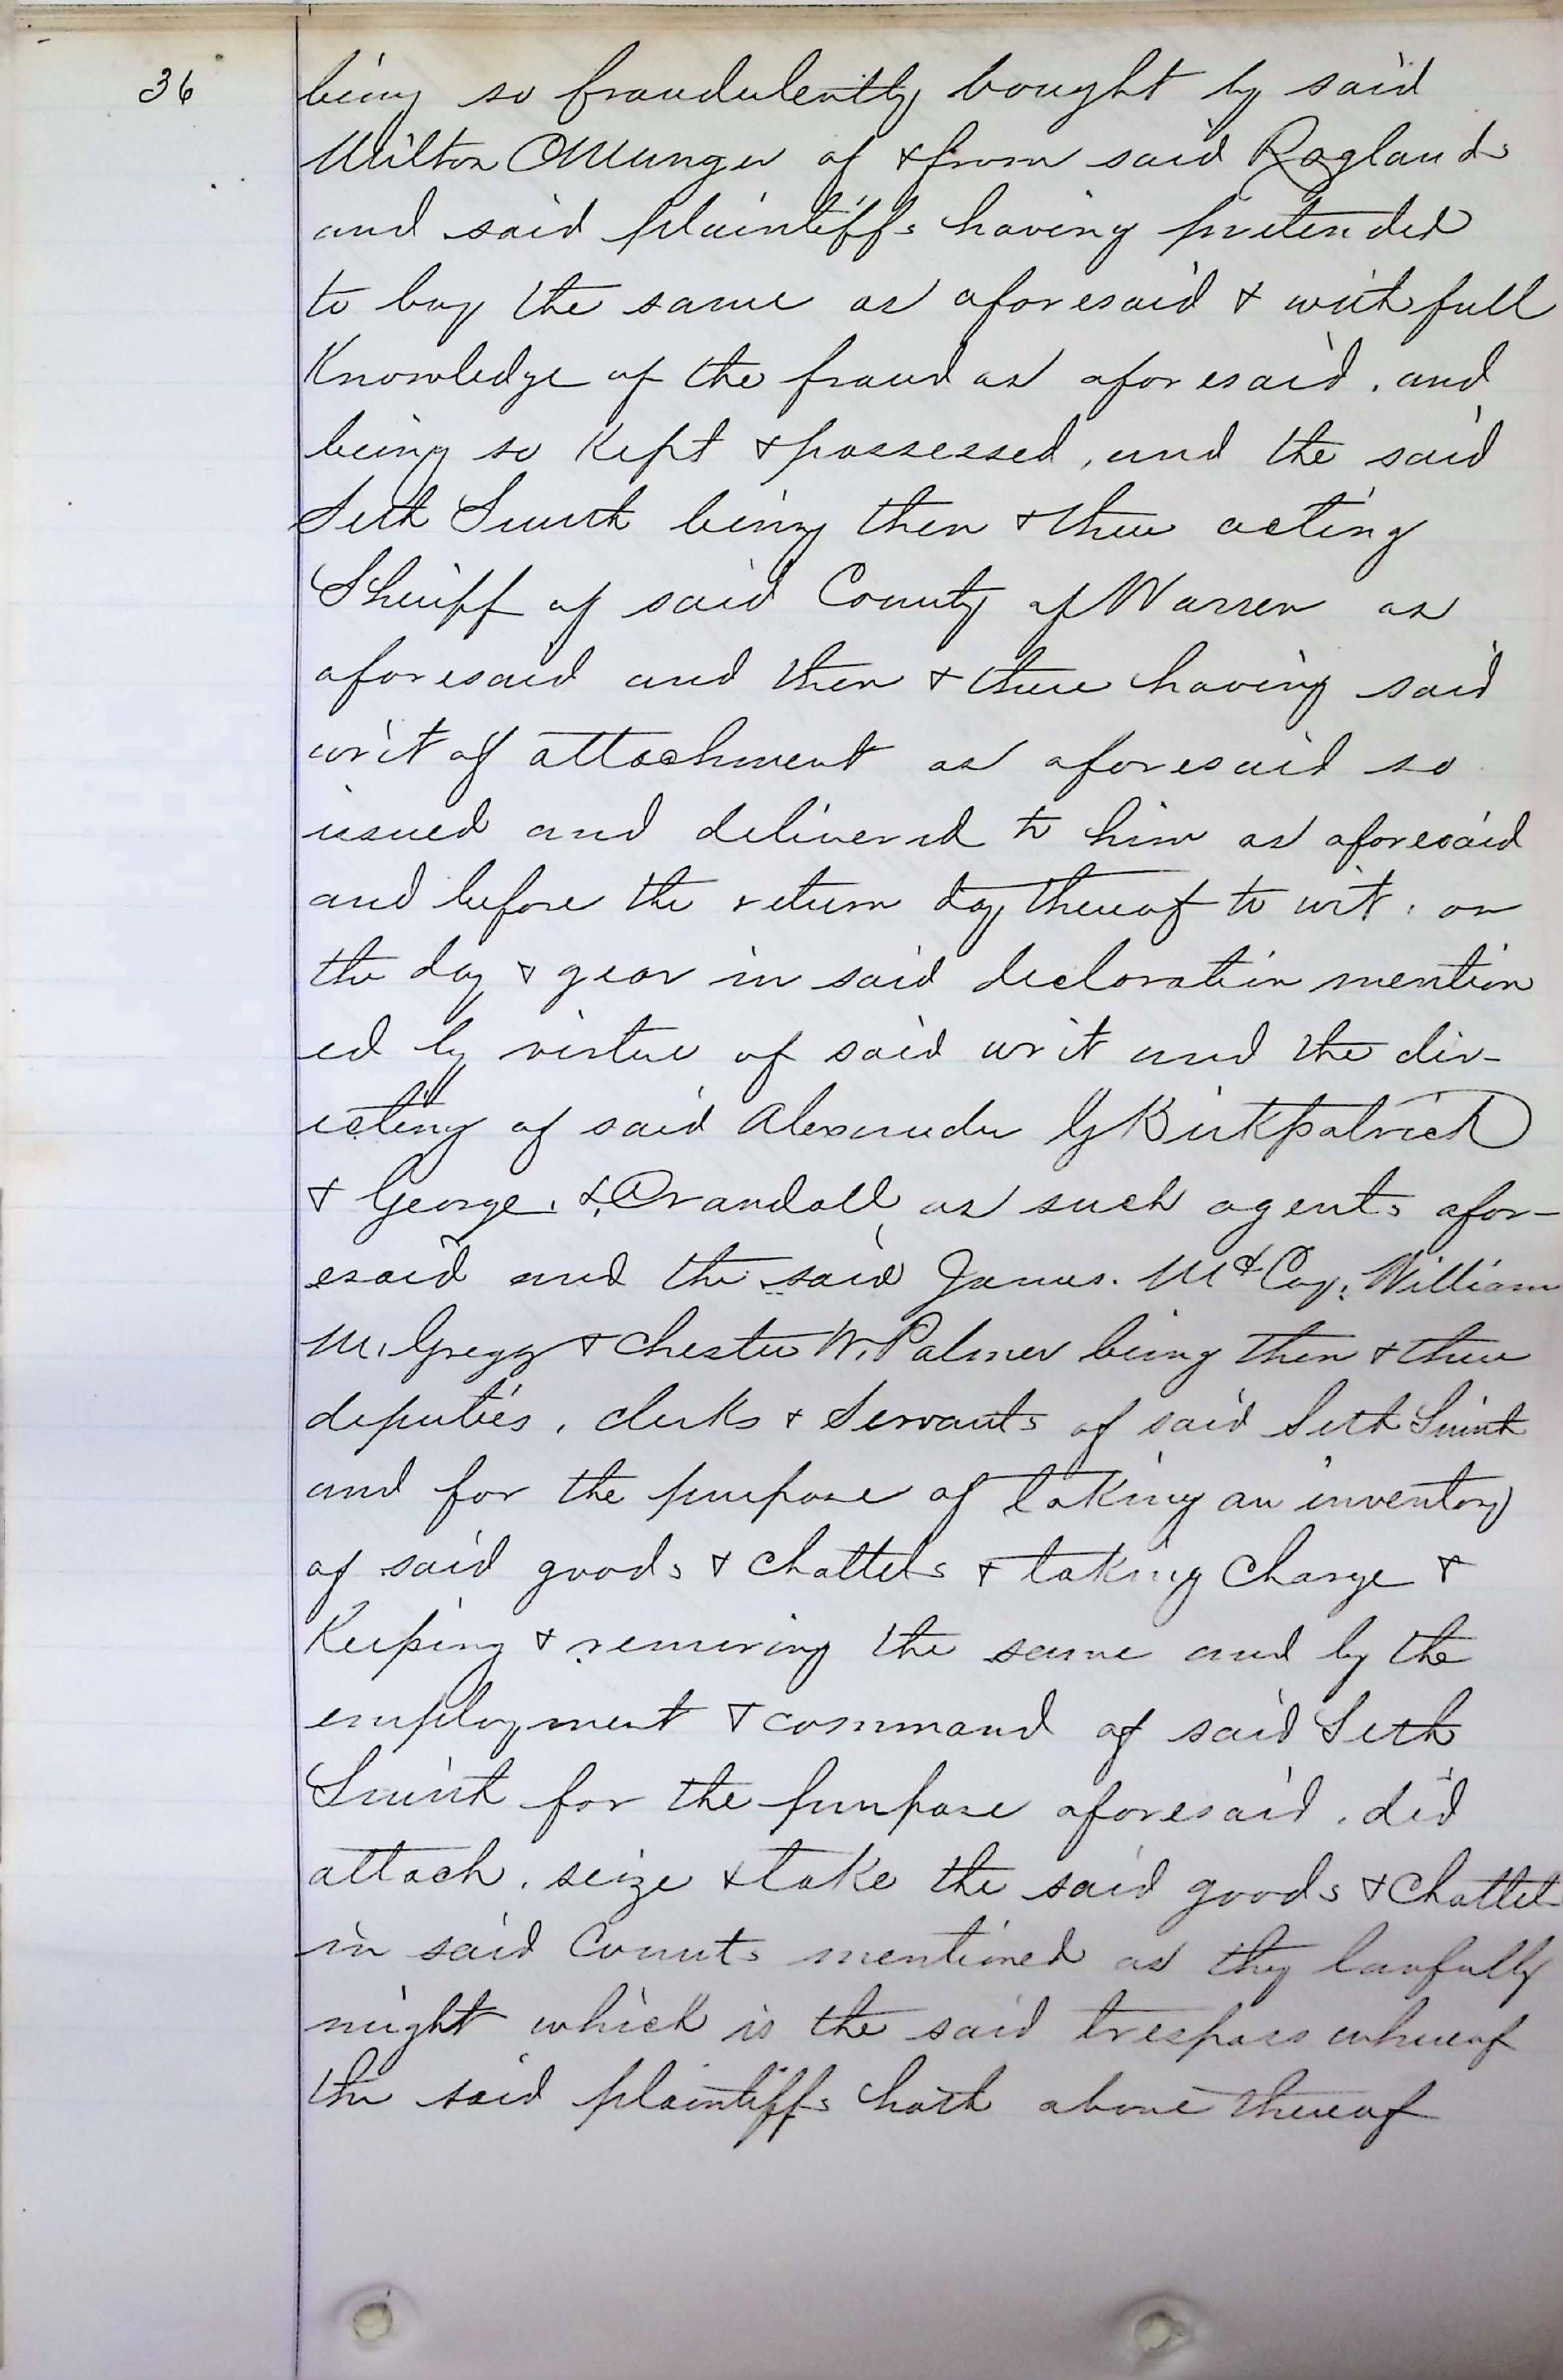 36
being so fraudulently bought by said
Milton O Munger of & from said Raglands
and said plaintiffs having pretended
to buy the same as aforesaid & with full
Knowledge of the fraud as aforesaid, and
being so Kept & possessed, and the said
Seth Smith being then & there acting
Sheriff of said County of Warren as
aforesaid and then & there having said
writ of attachment as aforesaid so
issued and delivered to him as aforesaid
and before the return day thereof to wit, on
the day & year in said declaration mention
ed by virtue of said writ and the dir-
ecting of said Alexander G Kirkpatrick
& George. Crandall as such agents afor-
esaid and the said James. McCoy, William
M. Gregg & Chester W. Palmer being then & there
deputies, clerks & Servants of said Seth Smith
and for the purpose of taking an inventory
of said goods & chattels & taking charge &
Keeping & removing the same and by the
employment & command of said Seth
Smith for the purpose aforesaid, did
attach, seize & take the said goods & chattels
in said Counts mentioned as they lawfully
might which is the said trespass whereof
the said plaintiffs hath above thereof